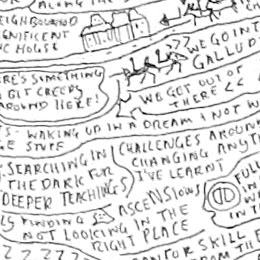 ALONG THE
NEIGHBOURHOOD
MAGNIFICENT
HOUSE
WE GO INT
GALLUD
THERE'S SOMETHING
A BIT CREEPY
AROUND HERE!
WE GET OUT OF
THERE
WAKING UP IN A DREAM & NOT W
STUFF
SEARCHING IN
THE DARK FOR
DEEPER TEACHINGS
CHALLENGES AROUN
CHANGING ANYT
I'VE LEARNT
ASCENSIONS
FINDING
NOT LOOKING IN THE
RIGHT PLACE
FULL
IN
W
IN T
Z Z Z Z Z Z
FOR SKILL
THE